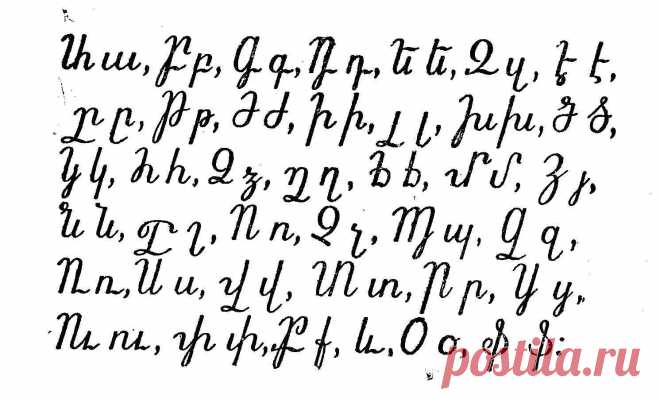 Աա, Բբ, Գգ, Դդ, Եե, Զզ, Էէ,
Ըը, Թթ, Ժժ, Իի, Լլ, Խխ, Ծծ,
Կկ, Հհ, Ձձ, Ղղ, Ճճ, Մմ, Յյ,
Նն, Շշ, Ոո, Չչ, Պպ, Ջջ,
Ռռ, Սս, Վվ, Տտ, Րր, Ցց,
Ուու, Փփ, Քք, և, Օօ, Ֆֆ:
postila.ru